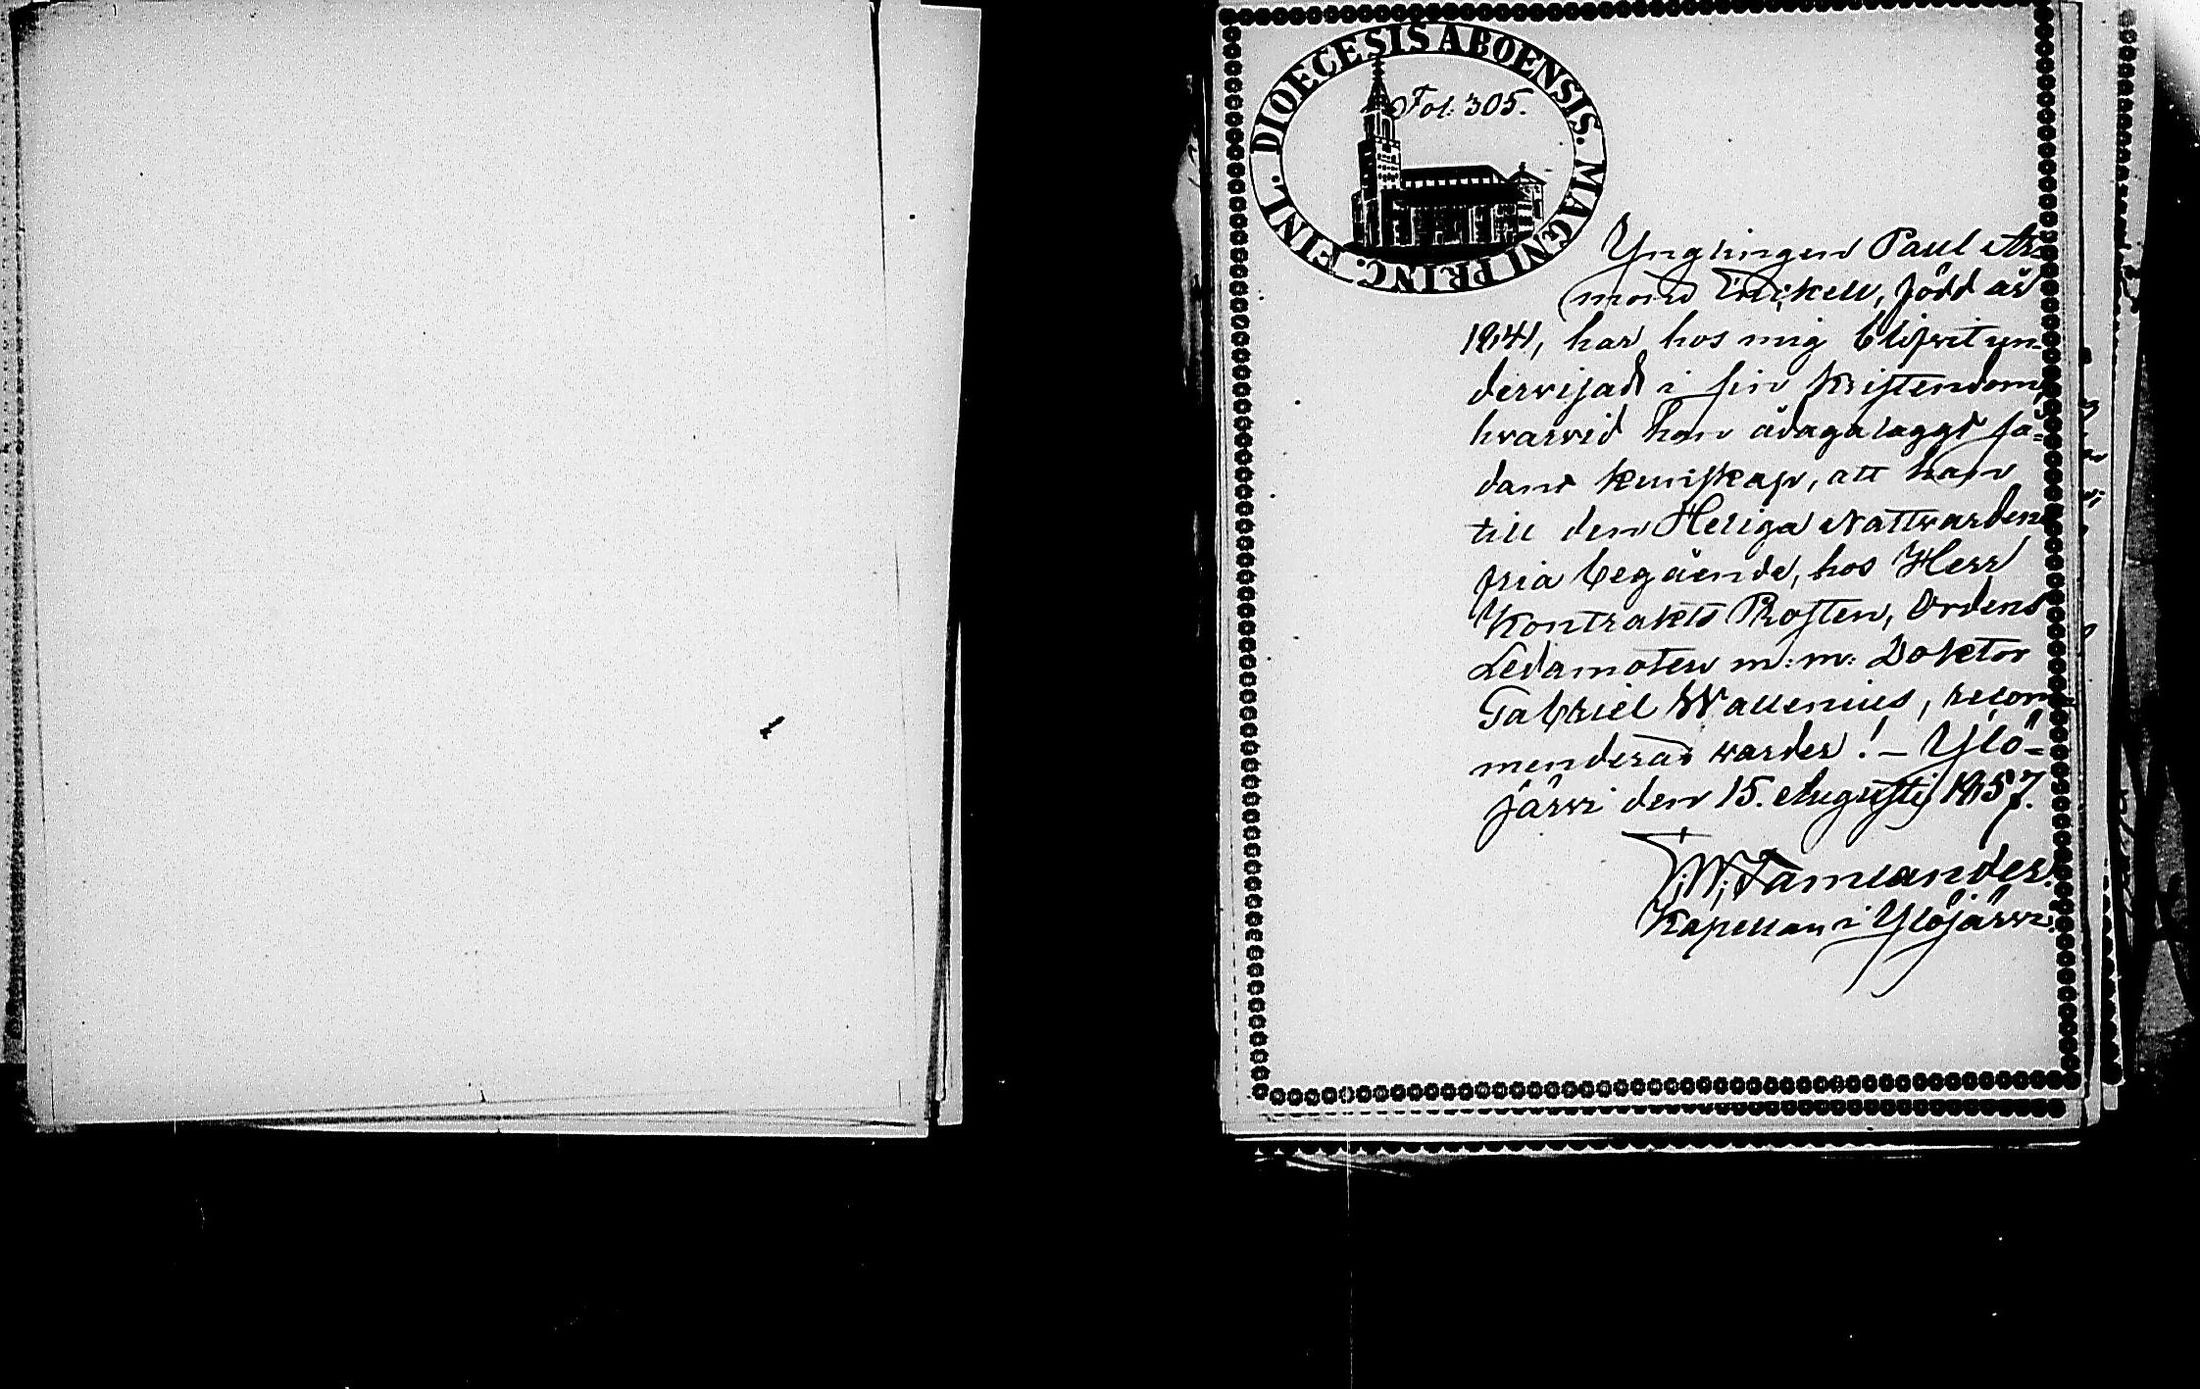 DIOECESIS ABOENSIS. MAGNI PRINC. FINL.
Fol: 305.
Ynglingen Paul Ar-
mond Enckell, född år
1841, har hos mig blifvit un-
dervisad i sin Kristendom,
hvarvid han ådagalaggt så-
dane kunskap, att han
till den Heliga Nattvardens
fria begående, hos Herr
Kontrakts Prosten, Ordens
Ledamoten m: m: Doktor
Gabriel Wallenius, recom-
menderad varder! – Ylö-
järvi den 15. Augusti 1857.
Kapellan i Ylöjärvi.